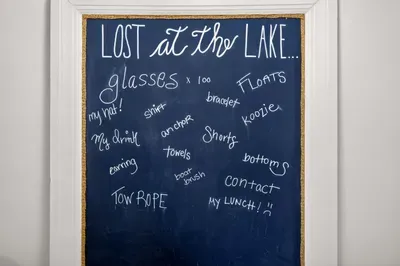 LOST at the LAKE...
glasses x 100
FLOATS
my hat!
shirt
bracelet
Koozie
anchor
My drink
Shorts
towels
earring
boat brush
bottoms
contact
TOW ROPE
MY LUNCH! :(